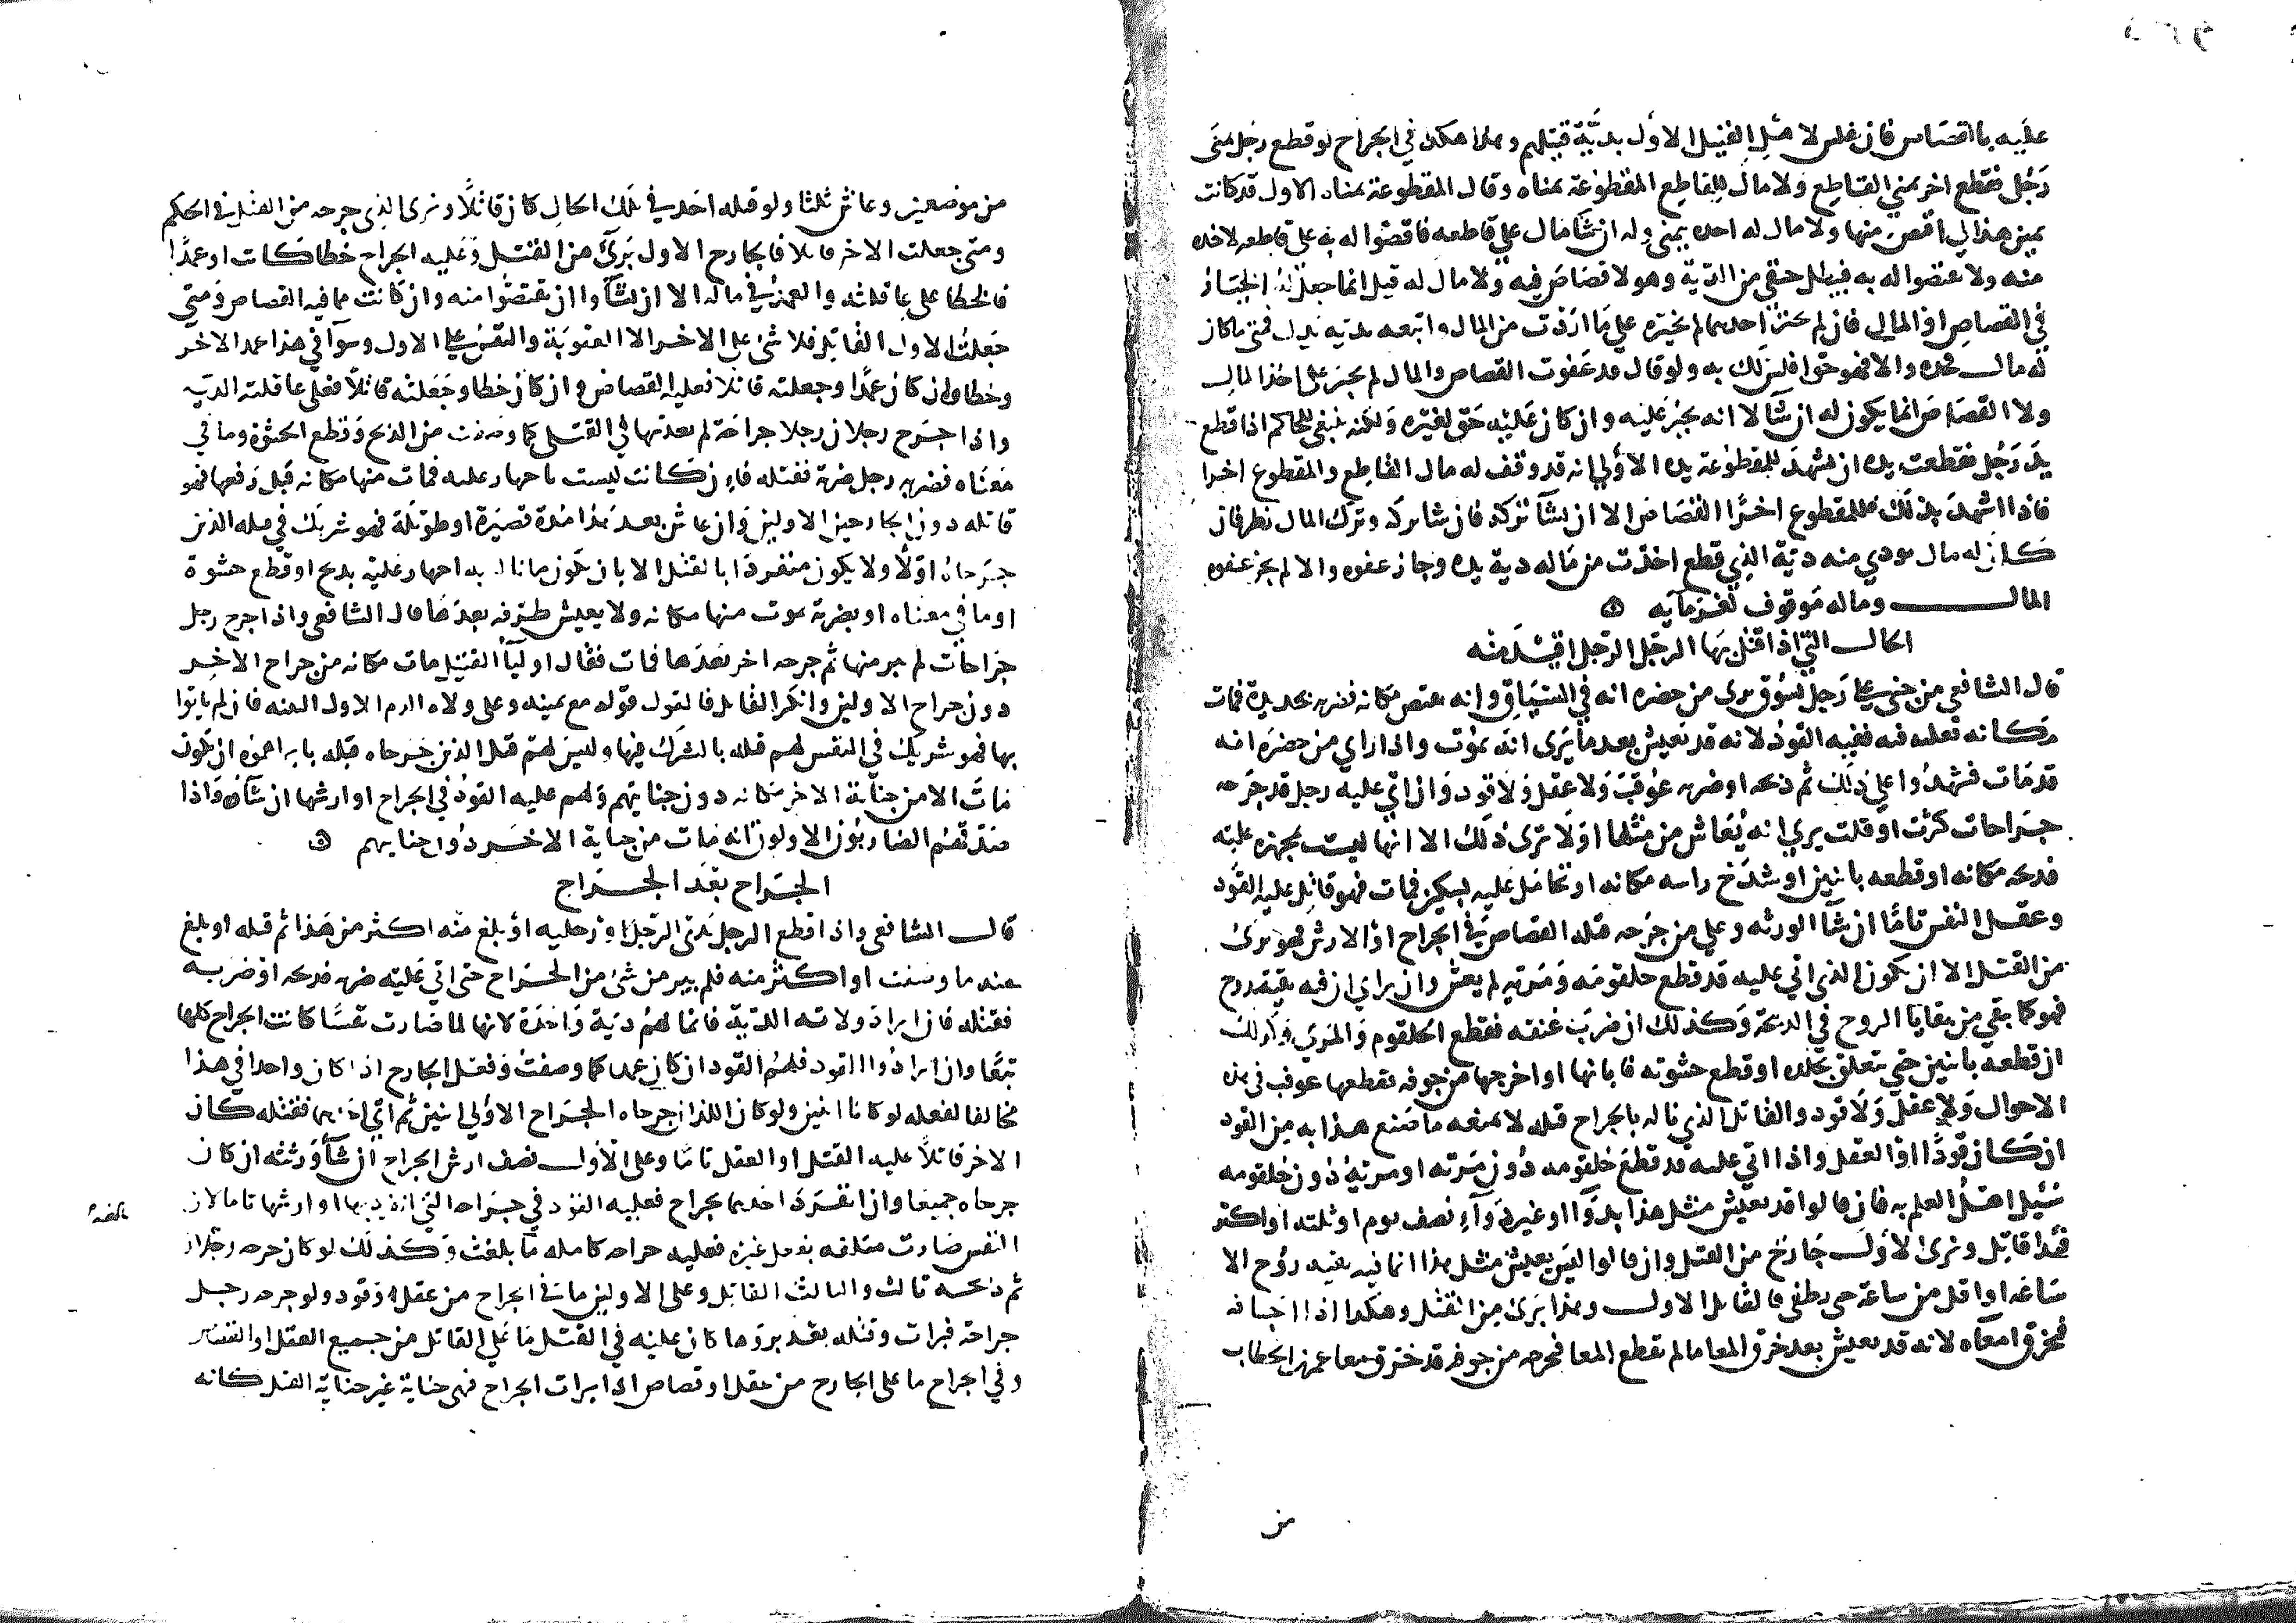 عليه بالقصاص فان فلس لاهل القتيل الاول بدية قتيلهم وهذا هكذا في الجراح لو قطع رجل يمنى
رجل فقطع اخر يمنى القاطع ولا مال للقاطع المقطوعة يمناه وقال المقطوعة يمناه الاول قد كانت
يمين هذا لي اقتص منها ولا مال له اخذه بيمني وله ان شا مال علي قاطعه فاقضوا له به على قاطعه لاخذه
منه ولا تقضوا له به فيبطل حقي من الدية وهو لا قصاص فيه ولا مال له قيل انما جعل له الخيار
في القصاص او المال فان لم يختر احدهما لم نخيره علي ما اردت من المال واتبعه بديه يدك فمتى ما كان
له مال فخذه والا فهو حق افلس لك به ولو قال قد عفوت القصاص والمال لم يجبر على اخذ المال
ولا القصاص انما يكون له ان شا لا انه يجبر عليه وان كان عليه حق لغيره ولكنه ينبغي للحاكم اذا قطع
يد رجل فقطعت يده ان يشهد للمقطوعة يده الاولي انه قد وقف له مال القاطع والمقطوع اخرا
فاذا اشهد بذلك فللمقطوع اخرا القصاص الا ان يشا تركه فان شا تركه وترك المال نظر فان
كان له مال يودي منه دية الذي قطع اخذت من ماله دية يده وجاز عفوه والا لم يجز عفوه
المال وماله موقوف لغرمايه
الحال التي اذا قتل بها الرجل الرجل اقيد منه
قال الشافعي من جنى علي رجل يسوق يرى من حضره انه في السياق وانه يقبض مكانه فضربه بحديدة فمات
مكانه فقتله فيه ففيه القود لانه قد يعيش بعد ما يرى انه يموت واذا راي من حضره انه
قد مات فشهدوا علي ذلك ثم ذبحه او ضربه عوقب ولا عقل ولا قود وان اتى عليه رجل قد جرحه
جراحات كثرت او قلت يري انه يعاش من مثلها او لا ترى ذلك الا انها ليست بمجهزه عليه
فذبحه مكانه او قطعه باثنين او شدخ راسه مكانه او تحامل عليه بسكين فمات فهو قاتل عليه القود
وعقل النفس تاما ان شا الورثه وعلي من جرحه قبله القصاص في الجراح او الارش وهو بري
من القتل الا ان يكون الذي اتي عليه قد قطع حلقومه ومريه لم يعش وان راي ان فيه بقية روح
فهو كما بقي من بقايا الروح في الذبيحة وكذلك ان ضرب عنقه فقطع الحلقوم والمري وكذلك
ان قطعه باثنين حتي تعلق بجلده او قطع حشوته فابانها او اخرجها من جوفه فقطعها عوقب في هذه
الاحوال ولا عقل ولا قود والقاتل الذي ناله بالجراح قبله لا يمنعه ما صنع هذا به من القود
ان كان قودا او العقل واذا اتي عليه قد قطع حلقومه دون مريه او مريه دون حلقومه
سئل اهل العلم به فان قالوا قد يعيش مثل هذا بدوا او غير دوآء نصف يوم او ثلثه او اكثر
فهذا قاتل وبرئ الاول جارح من القتل وان قالوا ليس يعيش مثل هذا انما فيه بقيه روح الا
ساعه او اقل من ساعة حتى يطفى فالقاتل الاول وهذا برئ من القتل وهكذا اذا اجافه
فخرق امعاه لانه قد يعيش بعد خرق المعا ما لم يقطع المعا فيخرجه من جوفه قد خرق معا عمر بن الخطاب
من
من موضعين وعاش ثلثا ولو قتله احد في تلك الحال كان قاتلا وبري الذي جرحه من القتل في الحكم
ومتى جعلت الاخر قاتلا فالجارح الاول بري من القتل وعليه الجراح خطا كانت او عمدا
فالخطا على عاقلته والعمد في ماله الا ان يشآوا ان يقتصوا منه وان كانت مما فيه القصاص ومتى
جعلت الاول القاتل فلا شئ على الاخر الا العقوبة والنفس على الاول وسوآ في هذا عمد الاخر
وخطاه ان كان عمدا وجعلته قاتلا فعليه القصاص وان كان خطا وجعلته قاتلا فعلى عاقلته الديه
واذا جرح رجلان رجلا جراحة لم يعد بها في القتلى كما وصفت من الذبح وقطع الحشوة وما في
معناه فضربه رجل ضربة فقتله فان كانت ليست باجهاز عليه فمات منها مكانه قبل رفعها فهو
قاتله دون الجارحين الاولين وان عاش بعد هذا مدة قصيرة او طويلة فهو شريك في قتله الذين
جرحاه اولا ولا يكون منفردا بالقتل الا بان يكون ما ناله به اجهاز عليه بذبح او قطع حشوة
او ما في معناه او بضربة يموت منها مكانه ولا يعيش طرفه بعدها قال الشافعي واذا جرح رجل
جراحات لم يبر منها ثم جرحه اخر بعدها فمات فقال اوليآ القتيل مات مكانه من جراح الاخر
دون جراح الاولين وانكر القاتل فالقول قوله مع يمينه وعلى ولاه الدم الاول البينه فان لم ياتوا
بها فهو شريك في النفس لهم قتله بالشرك فيها وليس لهم قتل الذين جرحاه قبله بابراهموه ان يكون
مات الا من جناية الاخر مكانه دون جنايتهم ولهم عليه القود في الجراح او ارشها ان شآوه واذا
صدقهم الضاربون الاولون انه مات من جناية الاخر دون جنايتهم
الجراح بعد الجراح
قال الشافعي واذا قطع الرجل يدي الرجل او رجليه او بلغ منه اكثر من هذا ثم قتله او بلغ
منه ما وصفت او اكثر منه فلم يبر من شئ من الجراح حتى اتي عليه ضربه فذبحه او ضربه
فقتله فان اراد ولاته الدية فانما لهم دية واحدة لانها لما صارت نفسا كانت الجراح كلها
تبعا وان ارادوا القود فلهم القود ان كان عمدا كما وصفت وفعل الجارح اذا كان واحدا في هذا
مخالفا لفعله لو كانا اثنين ولو كان اللذان جرحاه الجراح الاولي اثنين ثم اتي احدهما فقتله كان
الاخر قاتلا عليه القتل او العقل تاما وعلى الاول نصف ارش الجراح ان شآ ورثته ان كان
جرحاه جميعا وان انفرد احدهما بجراح فعليه القود في جراحه التي انفرد بها او ارشها تاما لان
النفس صارت متلفه بفعل غيره فعليه جراحه كامله ما بلغت وكذلك لو كان جرحه رجلان
ثم ذبحه ثالث والثالث القاتل وعلى الاولين ما في الجراح من عقل وقود ولو جرحه رجل
جراحة فبرات وقتله بعد بروها كان عليه في القتل ما علي القاتل من جميع العقل او القصاص
وفي الجراح ما على الجارح من عقل او قصاص اذا برات الجراح فهي جناية غير جناية القتل كانه